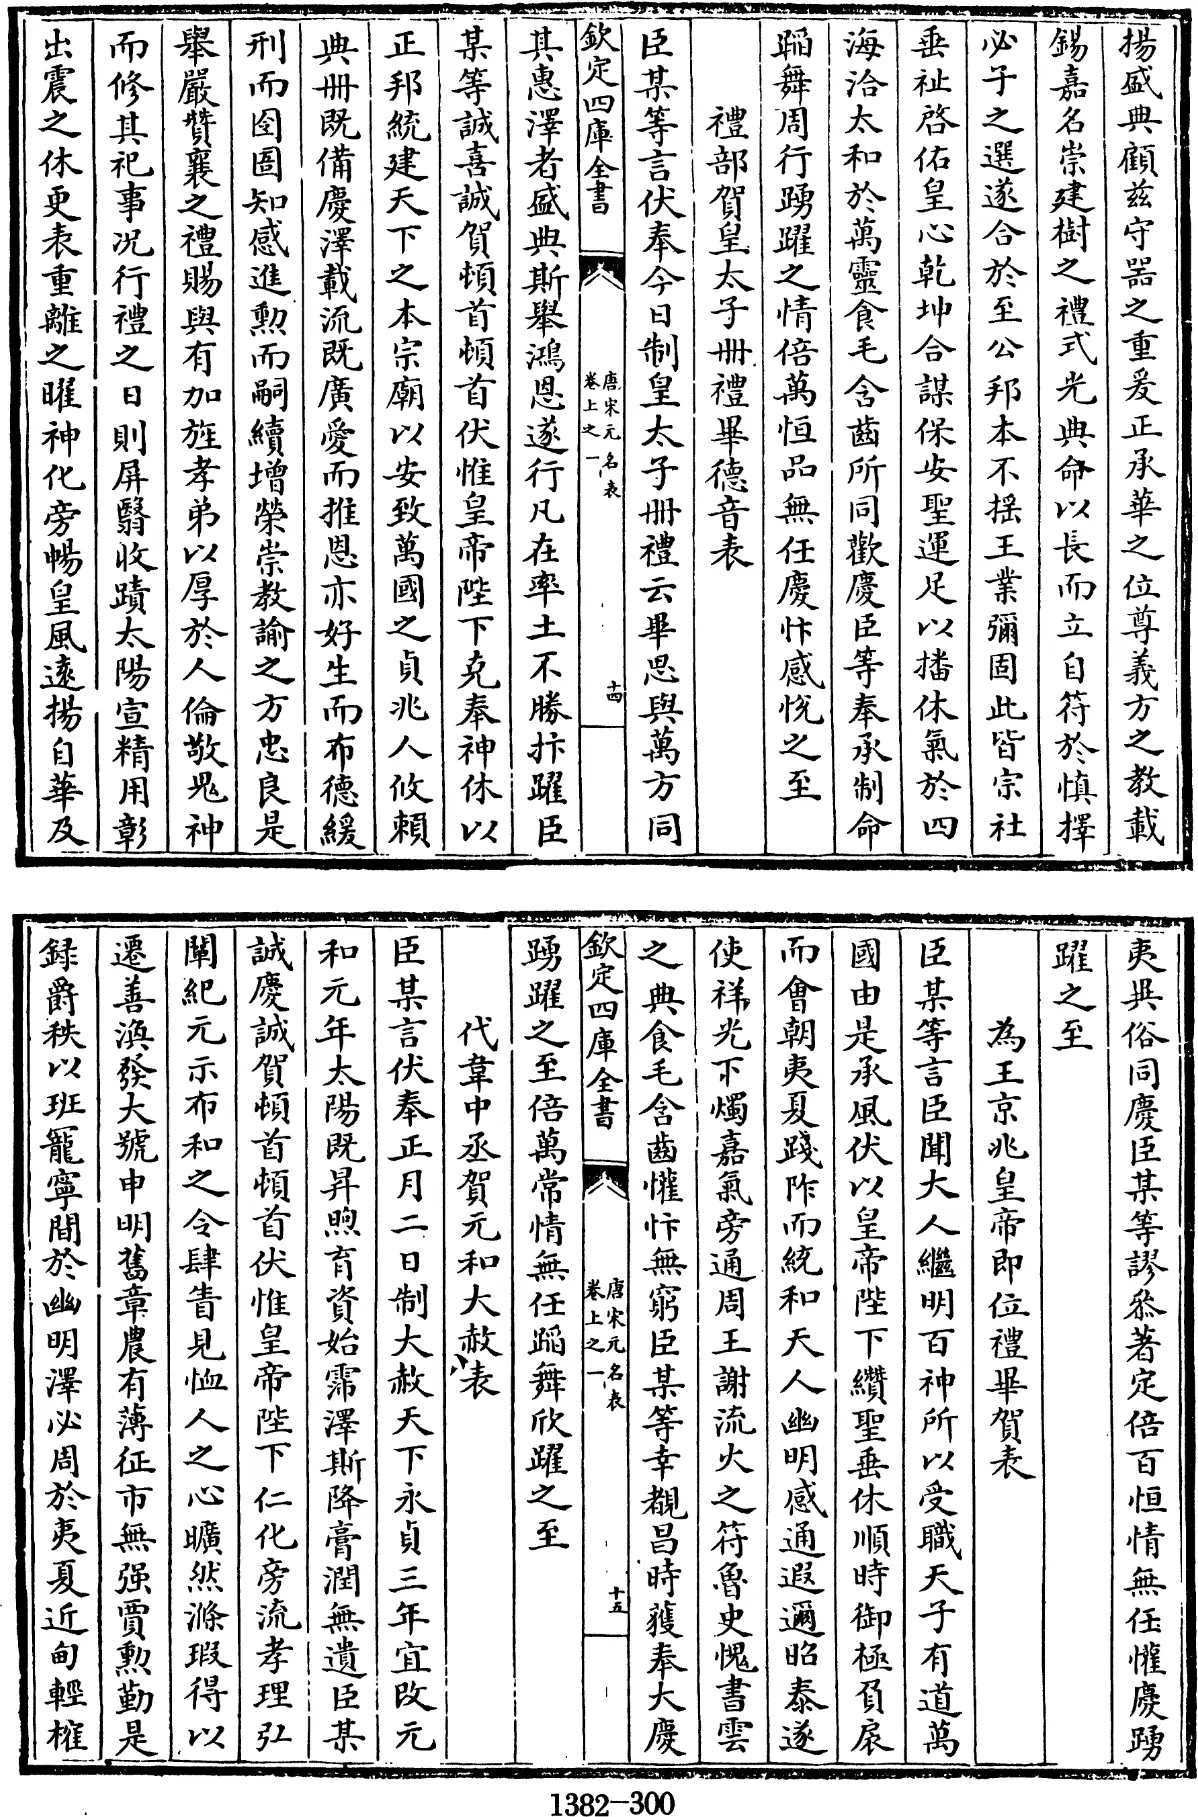 揚盛典顧兹守器之重爰正承華之位尊義方之教載
錫嘉名崇建樹之禮式光典命以長而立自符於慎擇
必子之選遂合於至公邦本不揺王業彌固此皆宗社
垂祉啓佑皇心乾坤合謀保安聖運足以播休氣於四
海洽太和於萬靈食毛含齒所同歡慶臣等奉承制命
蹈舞周行踴躍之情倍萬恒品無任慶忭感悦之至
禮部賀皇太子冊禮畢德音表
臣某等言伏奉今日制皇太子冊禮云畢思與萬方同
欽定四庫全書
唐宋元名表
卷上之一
十四
其惠澤者盛典斯舉鴻恩遂行凡在率土不勝抃躍臣
某等誠喜誠賀頓首頓首伏惟皇帝陛下克奉神休以
正邦統建天下之本宗廟以安致萬國之貞兆人攸賴
典冊既備慶澤載流既廣愛而推恩亦好生而布德緩
刑而囹圄知感進勲而嗣續增榮崇教諭之方忠良是
舉嚴贊襄之禮賜與有加旌孝弟以厚於人倫敬鬼神
而修其祀事况行禮之日則屏翳收蹟太陽宣精用彰
出震之休更表重離之曜神化旁暢皇風逺揚自華及
夷異俗同慶臣某等謬叅著定倍百恒情無任懽慶踴
躍之至
為王京兆皇帝即位禮畢賀表
臣某等言臣聞大人繼明百神所以受職天子有道萬
國由是承風伏以皇帝陛下纘聖垂休順時御極負扆
而會朝夷夏踐阼而統和天人幽明感通遐邇昭泰遂
使祥光下燭嘉氣旁通周王謝流火之符魯史愧書雲
之典食毛含齒懽忭無窮臣某等幸覩昌時獲奉大慶
欽定四庫全書
唐宋元名表
卷上之一
十五
踴躍之至倍萬常情無任蹈舞欣躍之至
代韋中丞賀元和大赦表
臣某言伏奉正月二日制大赦天下永貞三年宜改元
和元年太陽既昇煦育資始霈澤斯降膏潤無遺臣某
誠慶誠賀頓首頓首伏惟皇帝陛下仁化旁流孝理弘
闡紀元示布和之令肆眚見恤人之心曠然滌瑕得以
遷善渙發大號申明舊章農有薄征市無强賈勲勤是
録爵秩以班寵寧間於幽明澤必周於夷夏近甸輕榷
1382-300